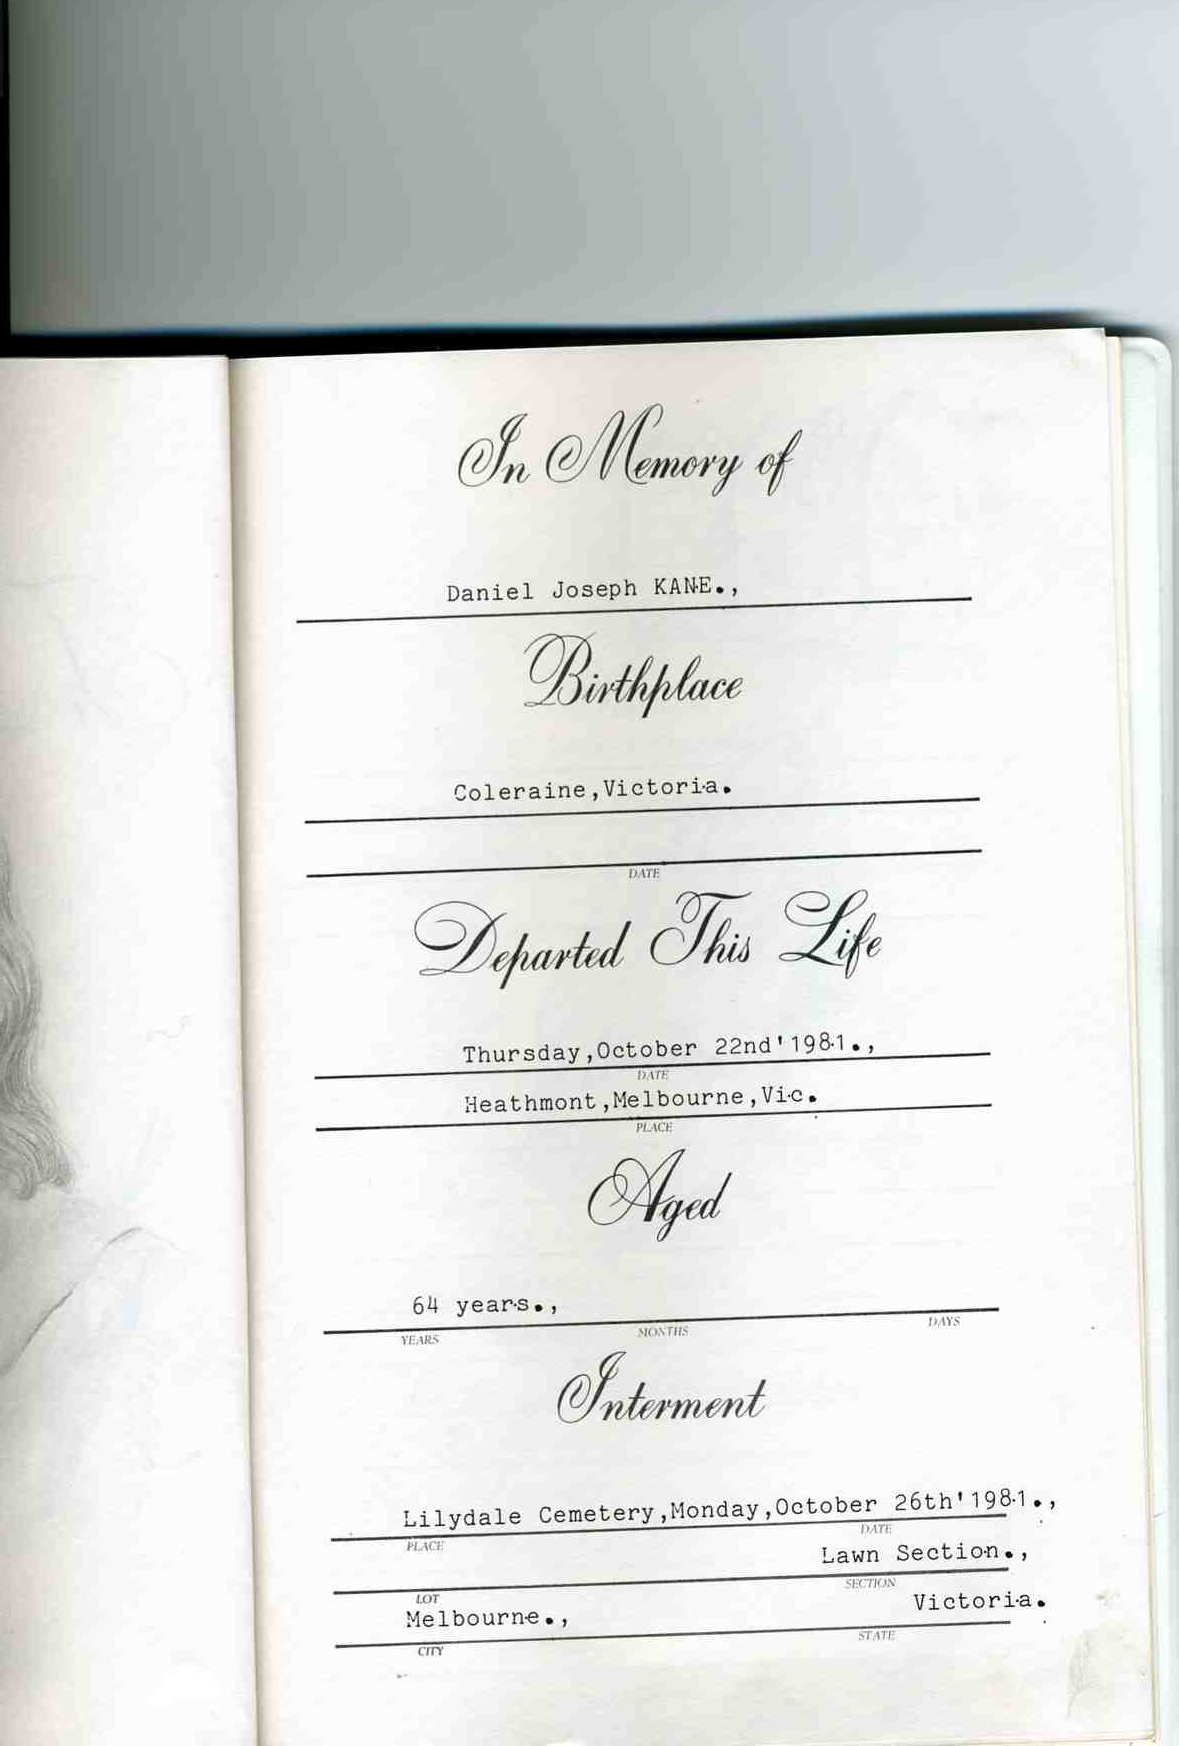 In Memory of
Daniel Joseph KANE.,
Birthplace
Coleraine,Victoria.
DATE
Departed This Life
Thursday,October 22nd'1981.,
DATE
Heathmont,Melbourne,Vic.
PLACE
Aged
64 years.,
YEARS MONTHS DAYS
Interment
Lilydale Cemetery,Monday,October 26th'1981.,
PLACE DATE
Lawn Section.,
LOT SECTION
Melbourne., Victoria.
CITY STATE